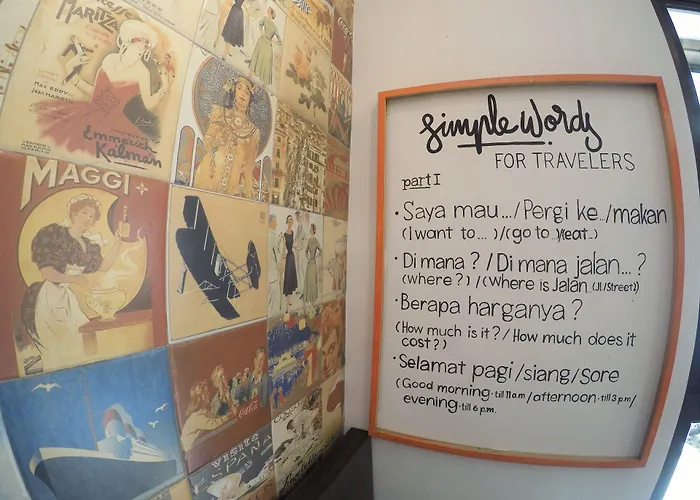 MARITZA
MAX EDDY
JEAN MARIETTI
Emmerich
Kalman
MAGGI
Coca-Cola
VISITE
ESPANA
Simple Words
FOR TRAVELERS
part I
· Saya mau.../Pergi ke../makan
(I want to... )/(go to ..)(eat..)
· Di mana? / Di mana jalan...?
(where?)/(Where is Jalan (Jl/Street))
· Berapa harganya?
(How much is it?/How much does it
cost?)
· Selamat pagi/siang/Sore
(Good morning·till 11am/afternoon·till 3pm/
evening·till 6 p.m.